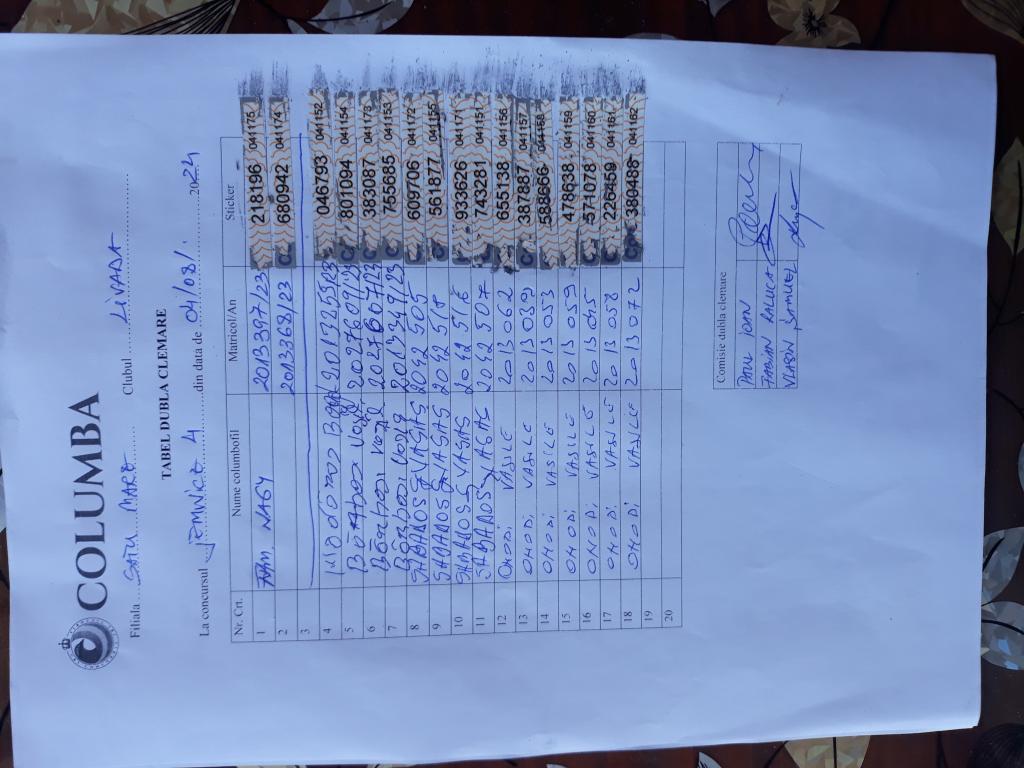 COLUMBA
Filiala SATU MARE Clubul LIVADA
TABEL DUBLA CLEMARE
La concursul JEMNICE 4 din data de 04/08/. 2024
Nr. Crt. Nume columbofil Matricol/An Sticker
1 NAGY 2013397/23 218196 041175
2 2013368/23 C 680942 041174
3
4 2013253/23 046793 041152
5 2027609/23 C 801094 041154
6 2027607/23 C 383087 041173
7 2013349/23 C 755685 041153
8 SABANOS VASAS 2042 505 609706 041172
9 SABANOS VASAS 2042 518 C 561877 041155
10 SABANOS VASAS 2042 516 933626 041171
11 SABANOS VASAS 2042 507 743281 041151
12 OHODI VASILE 2013062 655138 041156
13 OHODI VASILE 2013039 C 387887 041157
14 OHODI VASILE 2013053 588866 041158
15 OHODI VASILE 2013059 478638 041159
16 OHODI VASILE 2013045 C 571078 041160
17 OHODI VASILE 2013058 C 226459 041161
18 OHODI VASILE 2013072 380486 041162
19
20
Comisie dubla clemare
PAUL IOAN
FABIAN RALUCA
VLASIN SAMUEL